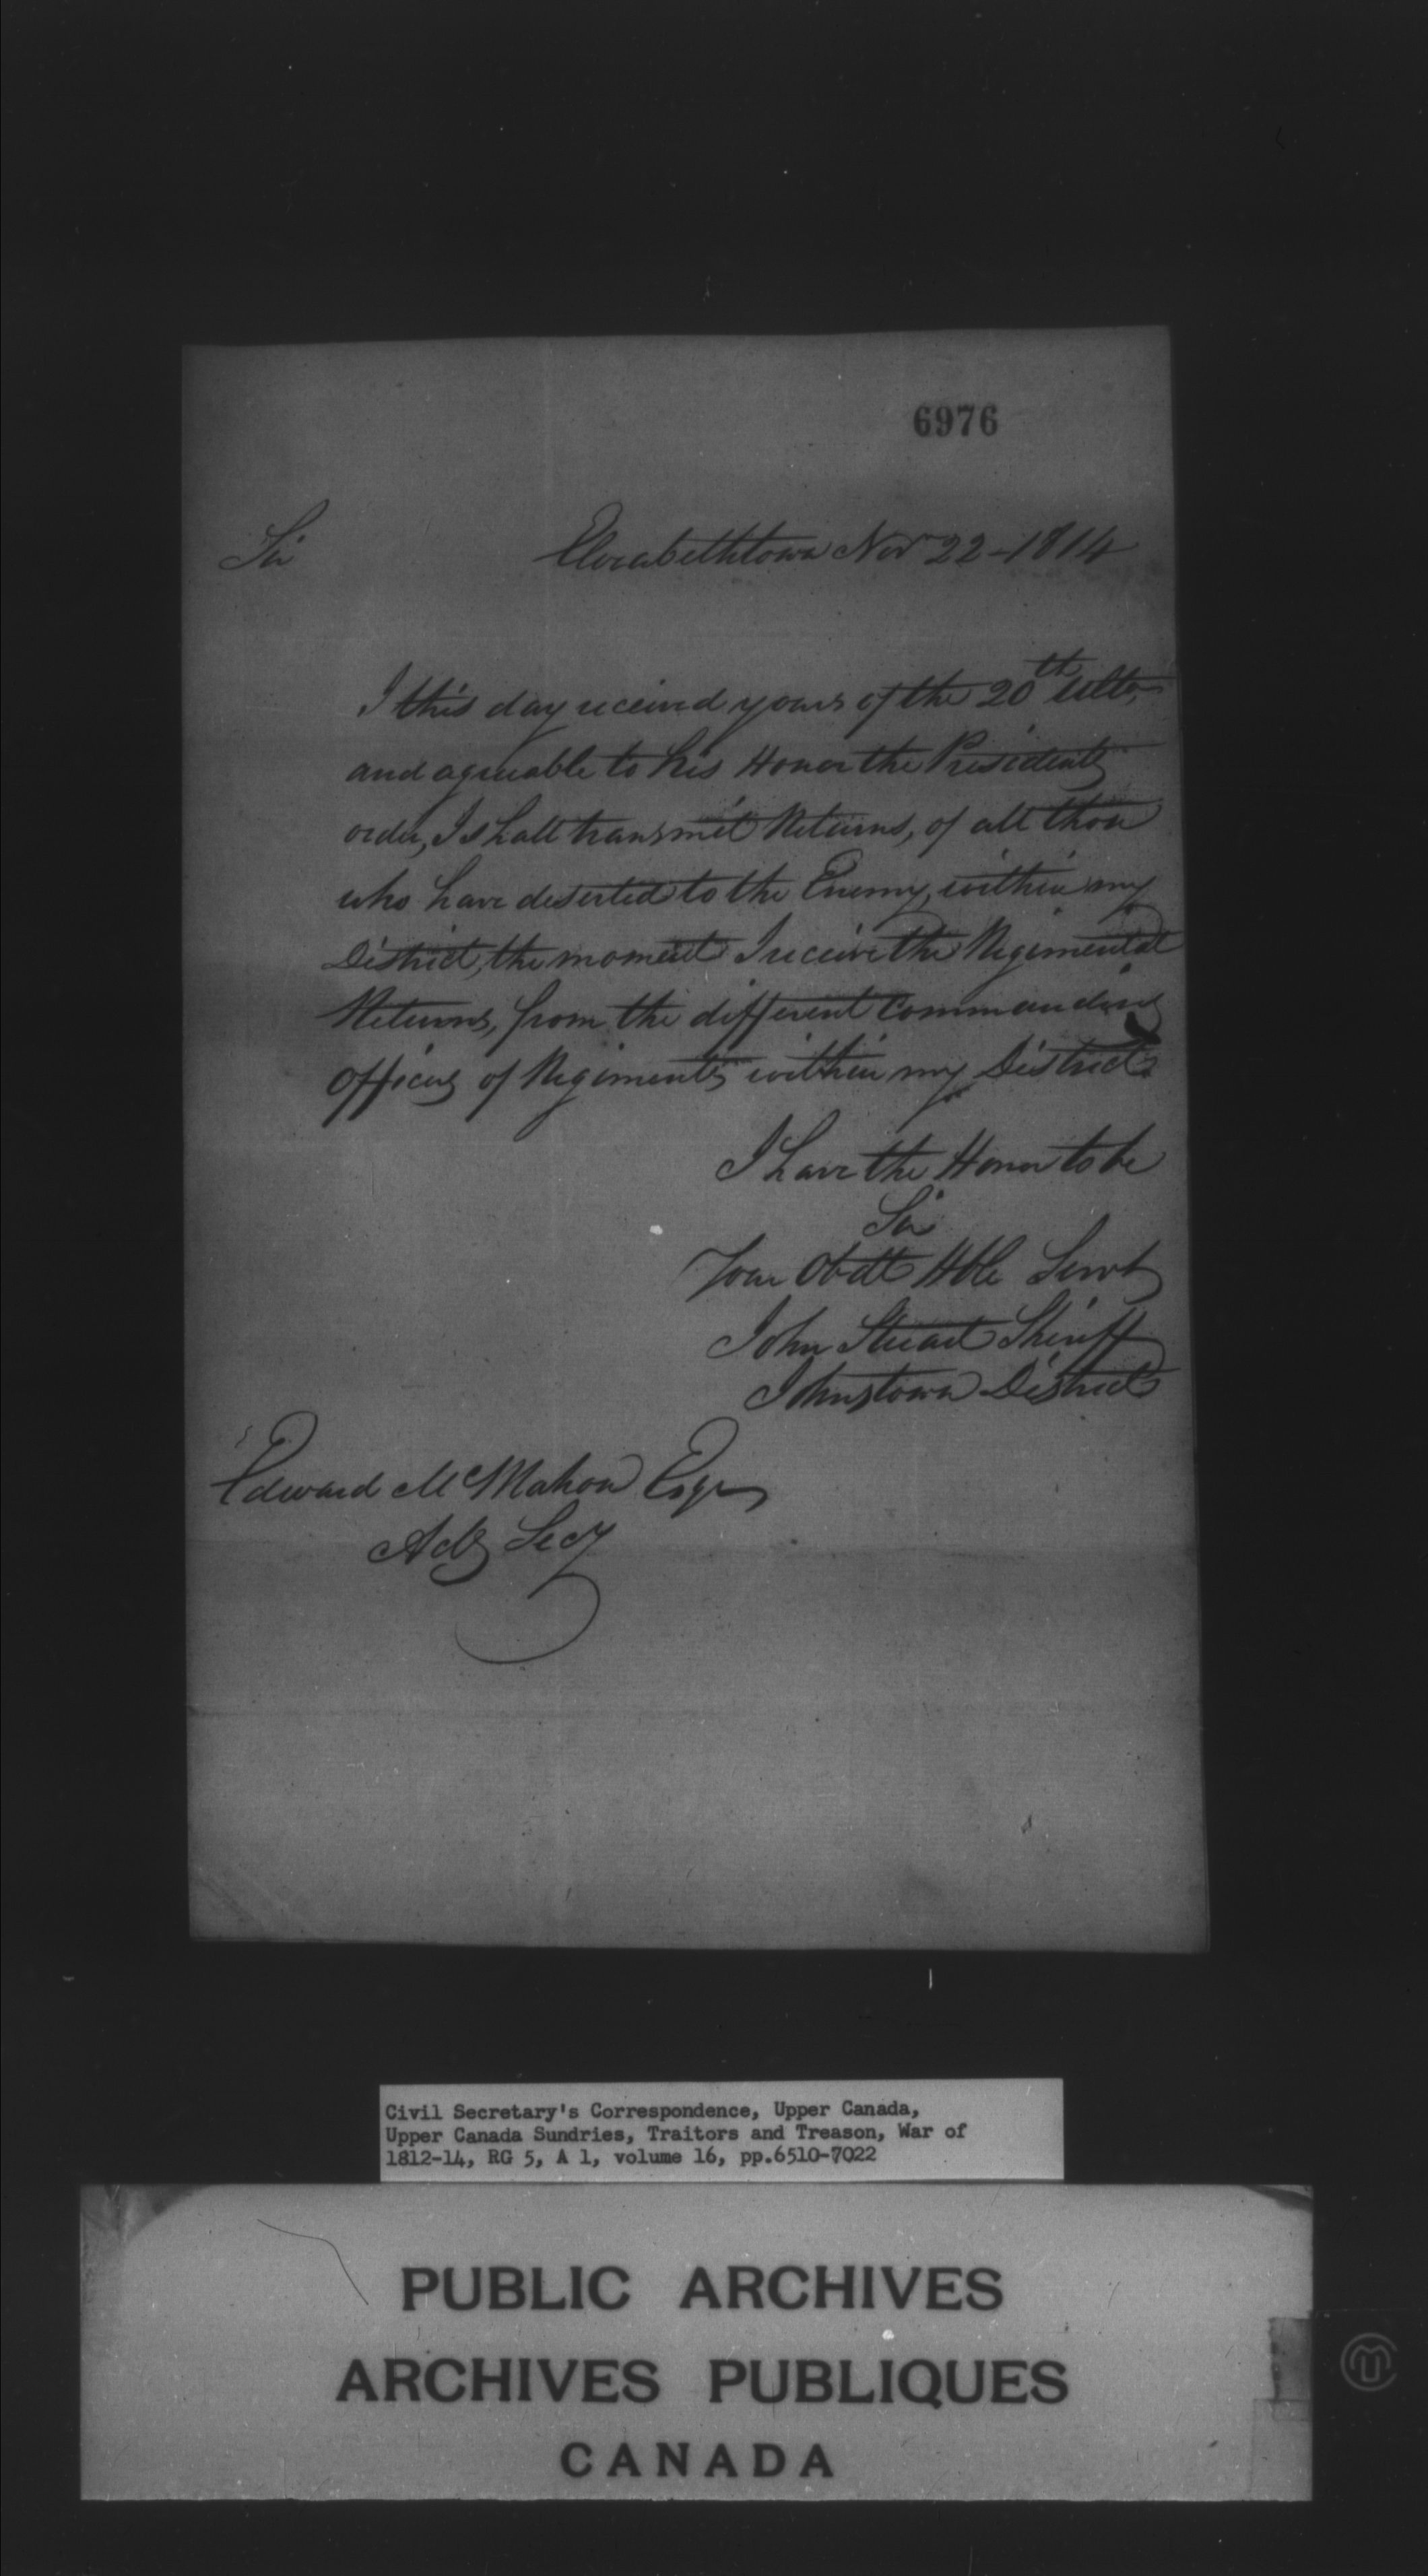 6976
Sir Elizabethtown Novr 22 - 1814
I this day received yours of the 20th ulto,
and agreeable to his Honor the Presidents
order, I shall transmit Returns, of all those
who have deserted to the Enemy, within my
District, the moment I receive the Regimental
Returns, from the different Commanding
Officers of Regiments within my District.
I have the Honor to be
Sir
Your Obdt Hble Servt
John Stuart Sheriff
Johnstown District
Edward McMahon Esqr
Actg Secy
Civil Secretary's Correspondence, Upper Canada,
Upper Canada Sundries, Traitors and Treason, War of
1812-14, RG 5, A 1, volume 16, pp.6510-7022
PUBLIC ARCHIVES
ARCHIVES PUBLIQUES
CANADA